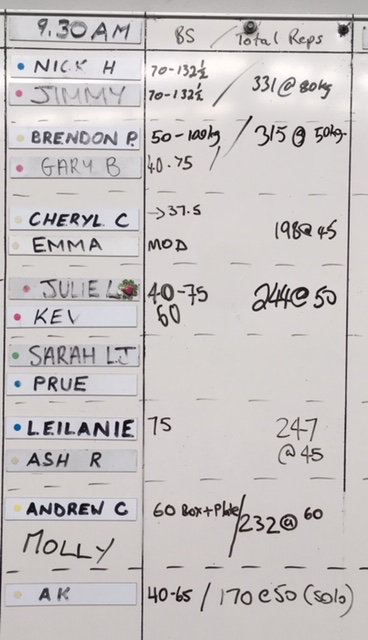 9.30AM BS / Total Reps
NICK H 70-132½
331@80kg
JIMMY 70-132½
BRENDON P. 50-100kg / 315@50kg
GARY B 40.75 /
CHERYL C →37.5
198@45
EMMA MOD
JULIE L 40-75 244@50
KEV 60
SARAH LJ
PRUE
LEILANIE 75 247
ASH R @45
ANDREW C 60 Box+Plate/232@60
MOLLY
AK 40-65 / 170@50 (Solo)